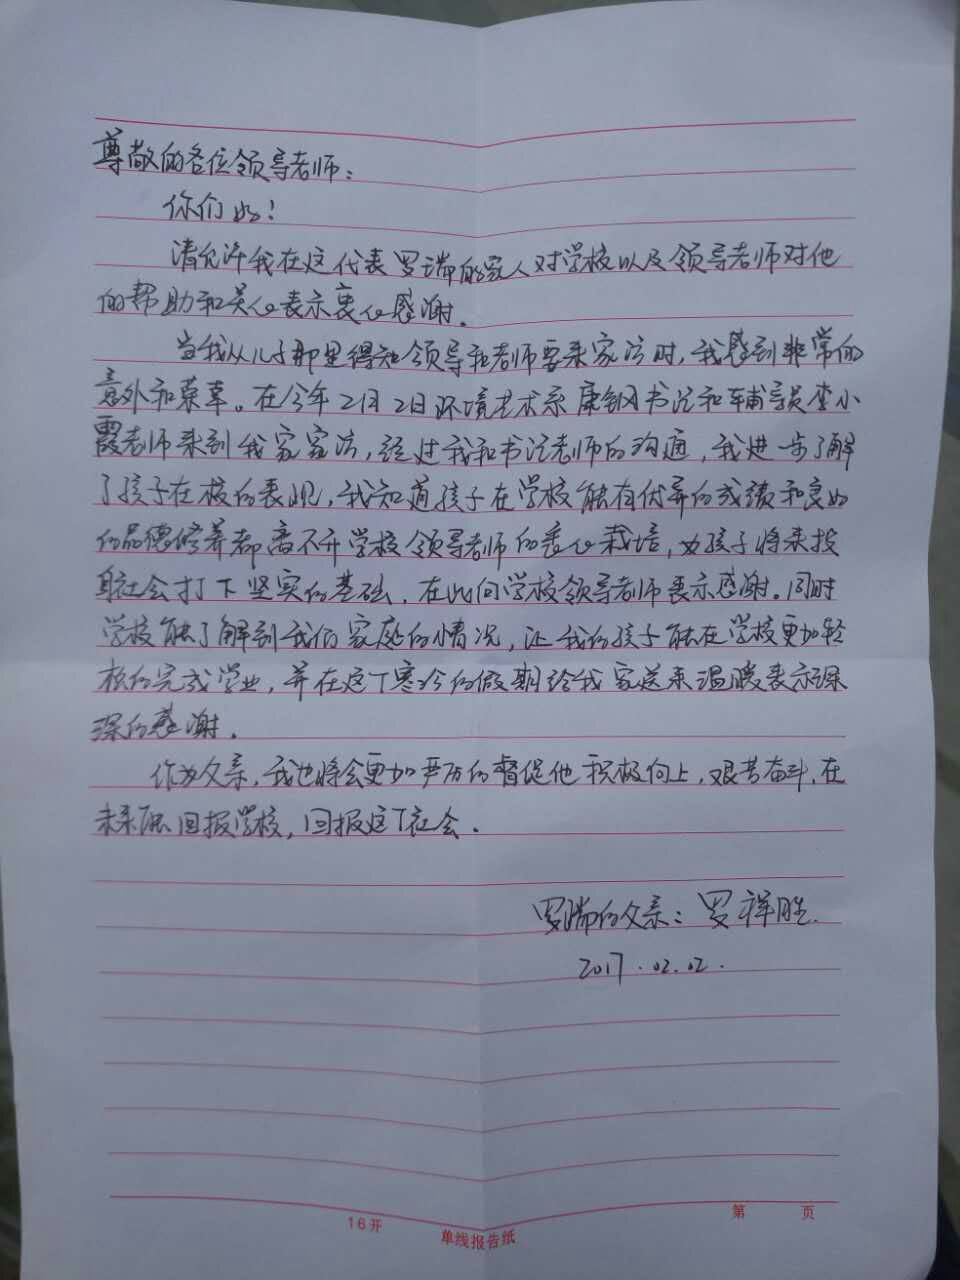 尊敬的各位领导老师：
你们好！
请允许我在这代表罗瑞的家人对学校以及领导老师对他
的帮助和关心表示衷心感谢.
当我从儿子那里得知领导和老师要来家访时,我感到非常的
意外和荣幸。在今年2月2日环境艺术系康钢书记和辅导员李小
霞老师来到我家家访,经过我和书记老师的沟通,我进一步了解
了孩子在校的表现,我知道孩子在学校能有优异的成绩和良好
的品德修养都离不开学校领导老师的栽培,为孩子将来投
身社会打下坚实的基础,在此向学校领导老师表示感谢.同时
学校能了解到我们家庭的情况,让我的孩子能在学校更加轻
松的完成学业,并在这个寒冷的假期给我家送来温暖表示深
深的感谢.
作为父亲,我也将会更加严厉的督促他积极向上,艰苦奋斗,在
未来能回报学校,回报这个社会.
罗瑞的父亲：罗祥胜.
2017.02.02.
16开
单线报告纸
第 页